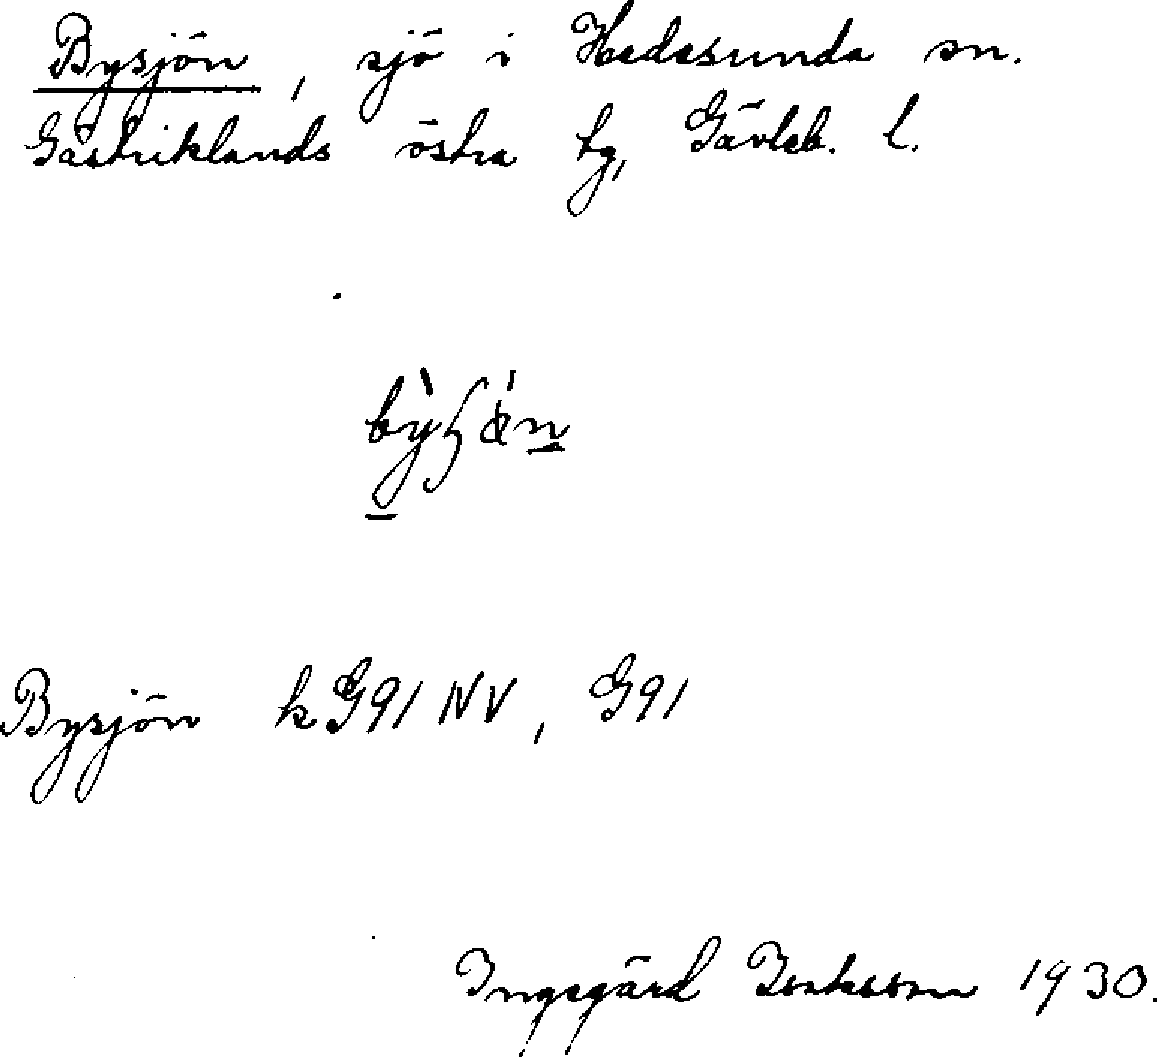 Bysjön, sjö i Hedesunda sn.
Gästriklands östra tg, Gävleb. l.
Bysjön k G91 NV, G91
Ingegärd Isaksson 1930.